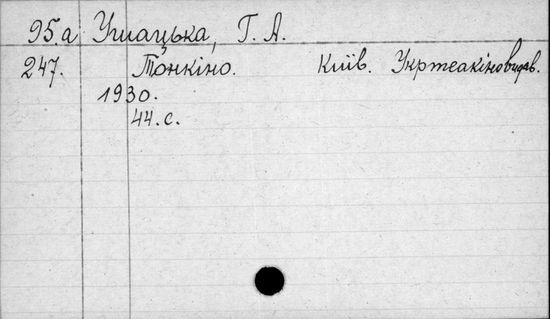 95.а Ушацька, Г. А.
247. Тонкіно. Київ. Укртеакіновидав.
1930.
44.с.